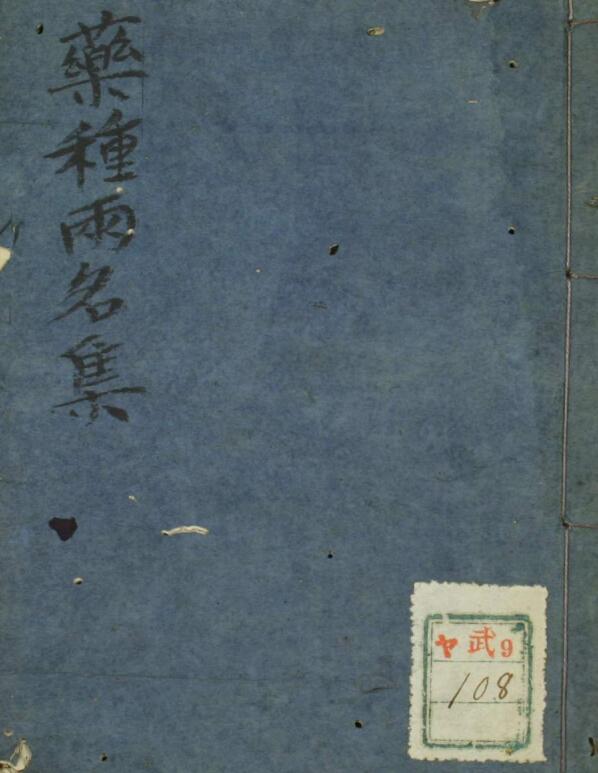 藥種兩名集
ヤ武9
108